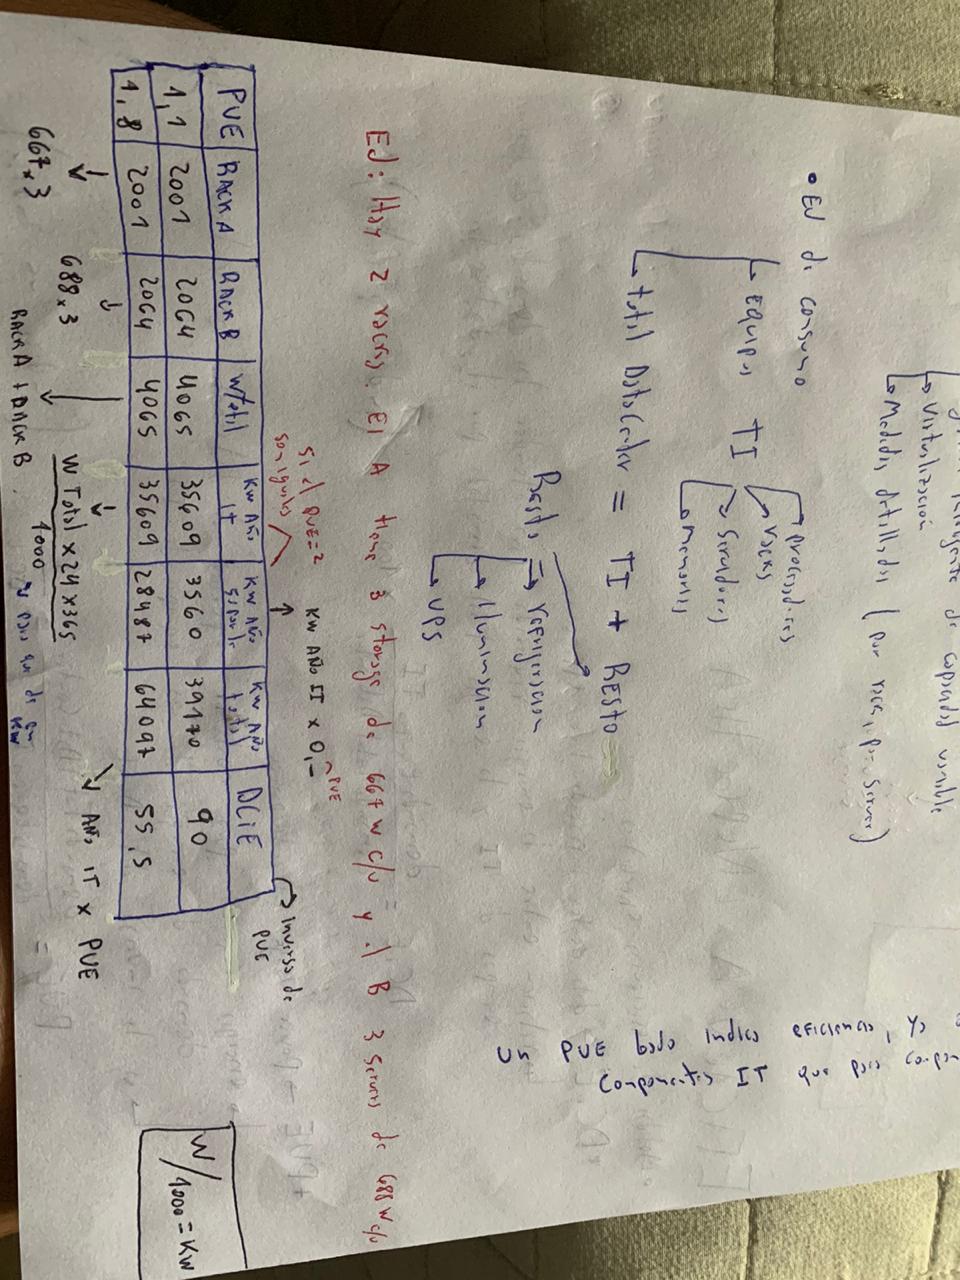 Virtualización
Medidas detalladas (por rack, por server)
• EJ de consumo
Equipos TI
procesadores
racks
Servidores
memorias
total DataCenter = TI + RESTO
Resto = refrigeracion
iluminacion
UPS
Un PUE bajo indica eficiencia, ya
componentes IT que para
EJ: Hay 2 racks. El A tiene 3 storage de 667 w c/u y el B 3 servers de 688 w c/u
si el PUE=2
son iguales
KW AÑO IT x 0,-
PUE
Inverso de
PUE
PUE RACK A RACK B W total KW AÑO IT KW AÑO soporte KW AÑO total DCiE
1,1 2001 2064 4065 35609 3560 39170 90
1,8 2001 2064 4065 35609 28487 64097 55,5
667x3
688x3
RACK A + RACK B
W Total x 24 x 365
1000
para que de en
KW
AÑO IT x PUE
W/1000 = KW